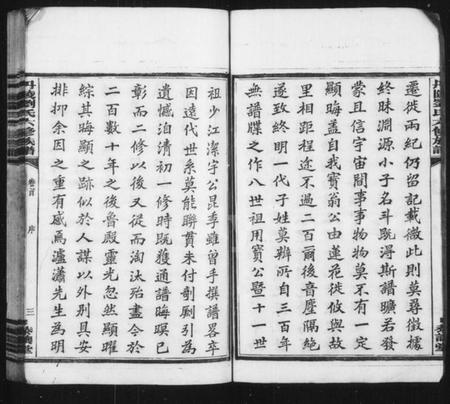 遷徙兩紀仍留記載微此則莫尋徵據
終昧淵源小子名斗既得斯譜曠若發
蒙且信宇宙間事事物物莫不有一定
顯晦蓋自我寶翁公由蓮花徙攸與故
里相距程途不過二百爾後音塵隔絶
遂致終明一代子姓莫辨所自三百年
無譜牒之作八世祖用賓公暨十一世
祖少江潔宇公昆季雖曾手撰譜畧卒
因遠代世系莫能聯貫未付剞劂引為
遺憾洎清初一修時既獲通譜晦暝已
彰而二修以後又從而淘汰殆盡今於
二百數十年之後魯殿靈光忽然顯曜
綜其晦顯之跡似於人謀以外別具安
排抑余因之重有感焉瀘瀟先生為明
卷首
序
三